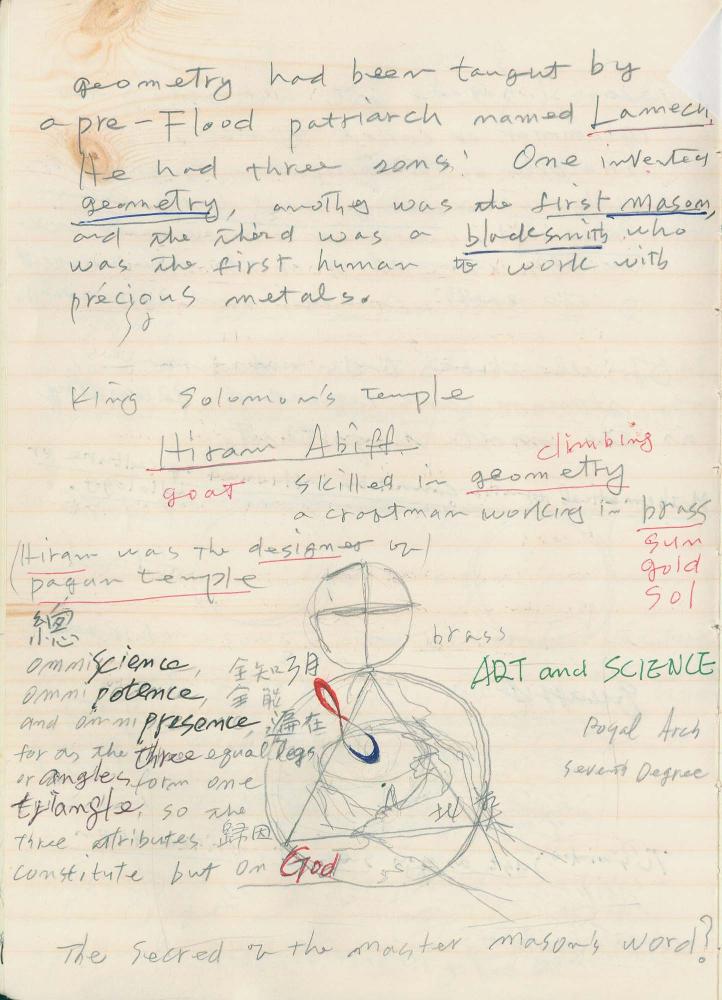 geometry had been taught by
a pre-Flood patriarch named Lamech.
He had three sons: One invented
geometry, another was the first mason,
and the third was a blacksmith who
was the first human to work with
precious metals.
King Solomon's Temple
Hiram Abiff.
climbing
goat
skilled in geometry
a craftman working in brass
sun
gold
sol
(Hiram was the designer of)
pagan temple
brass
ART and SCIENCE
omniscience, 全知
omnipotence, 全能
and omnipresence, 遍在
for as the three equal legs
or angles form one
triangle, so the
three attributes 歸因
constitute but on God
Royal Arch
Seventh Degree
The secred of the master mason's word?